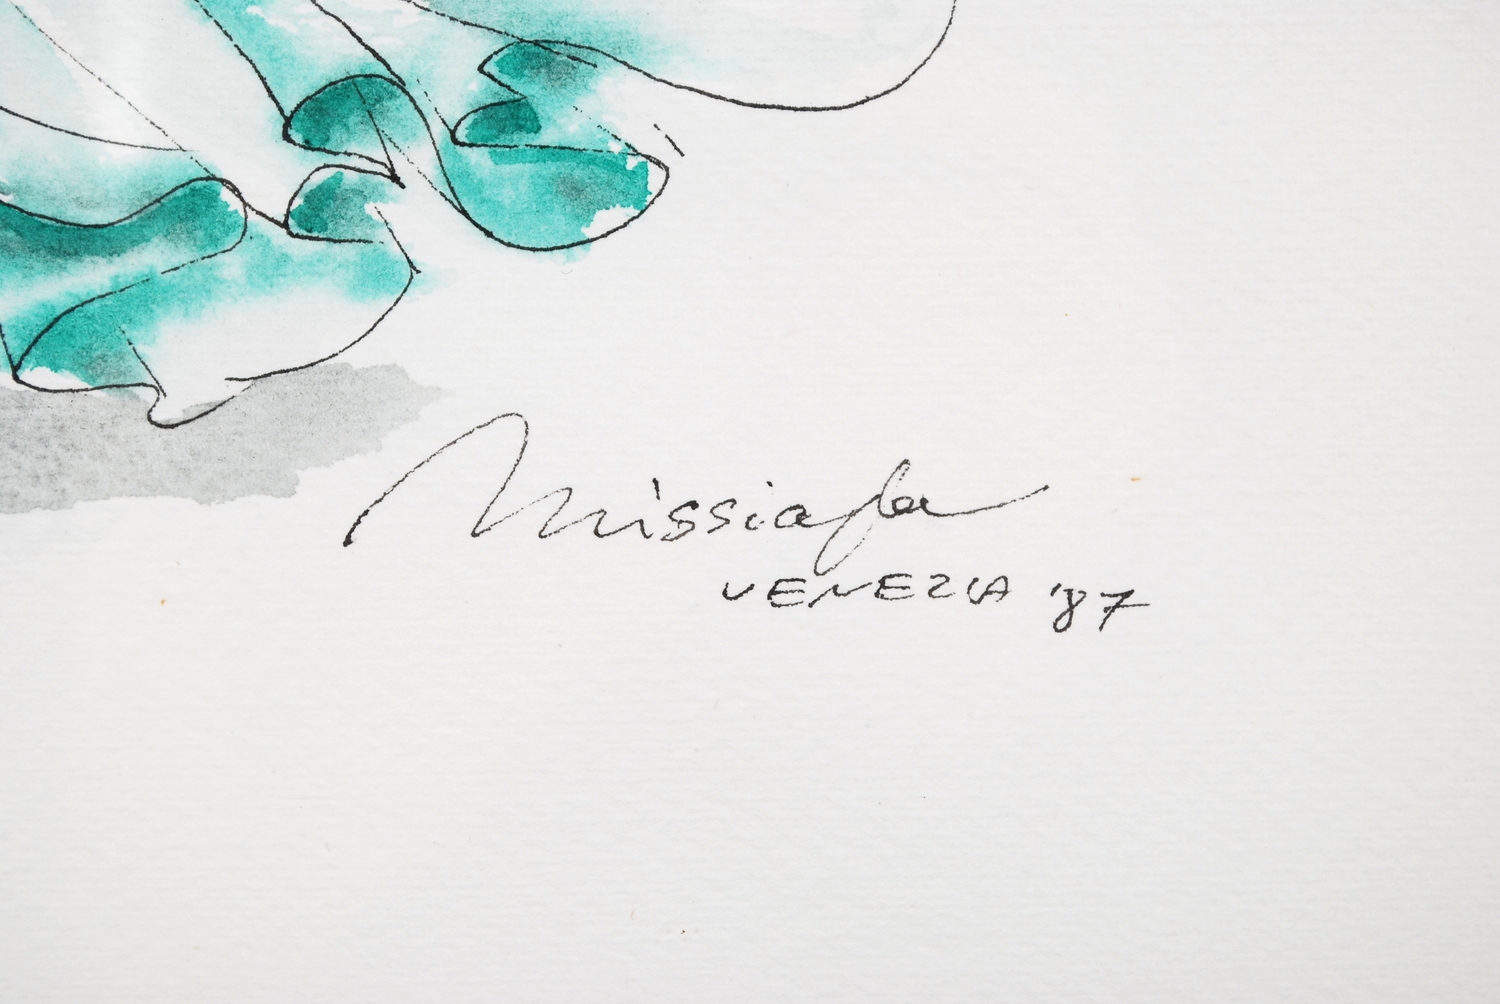 Missiaja
VENEZIA '87